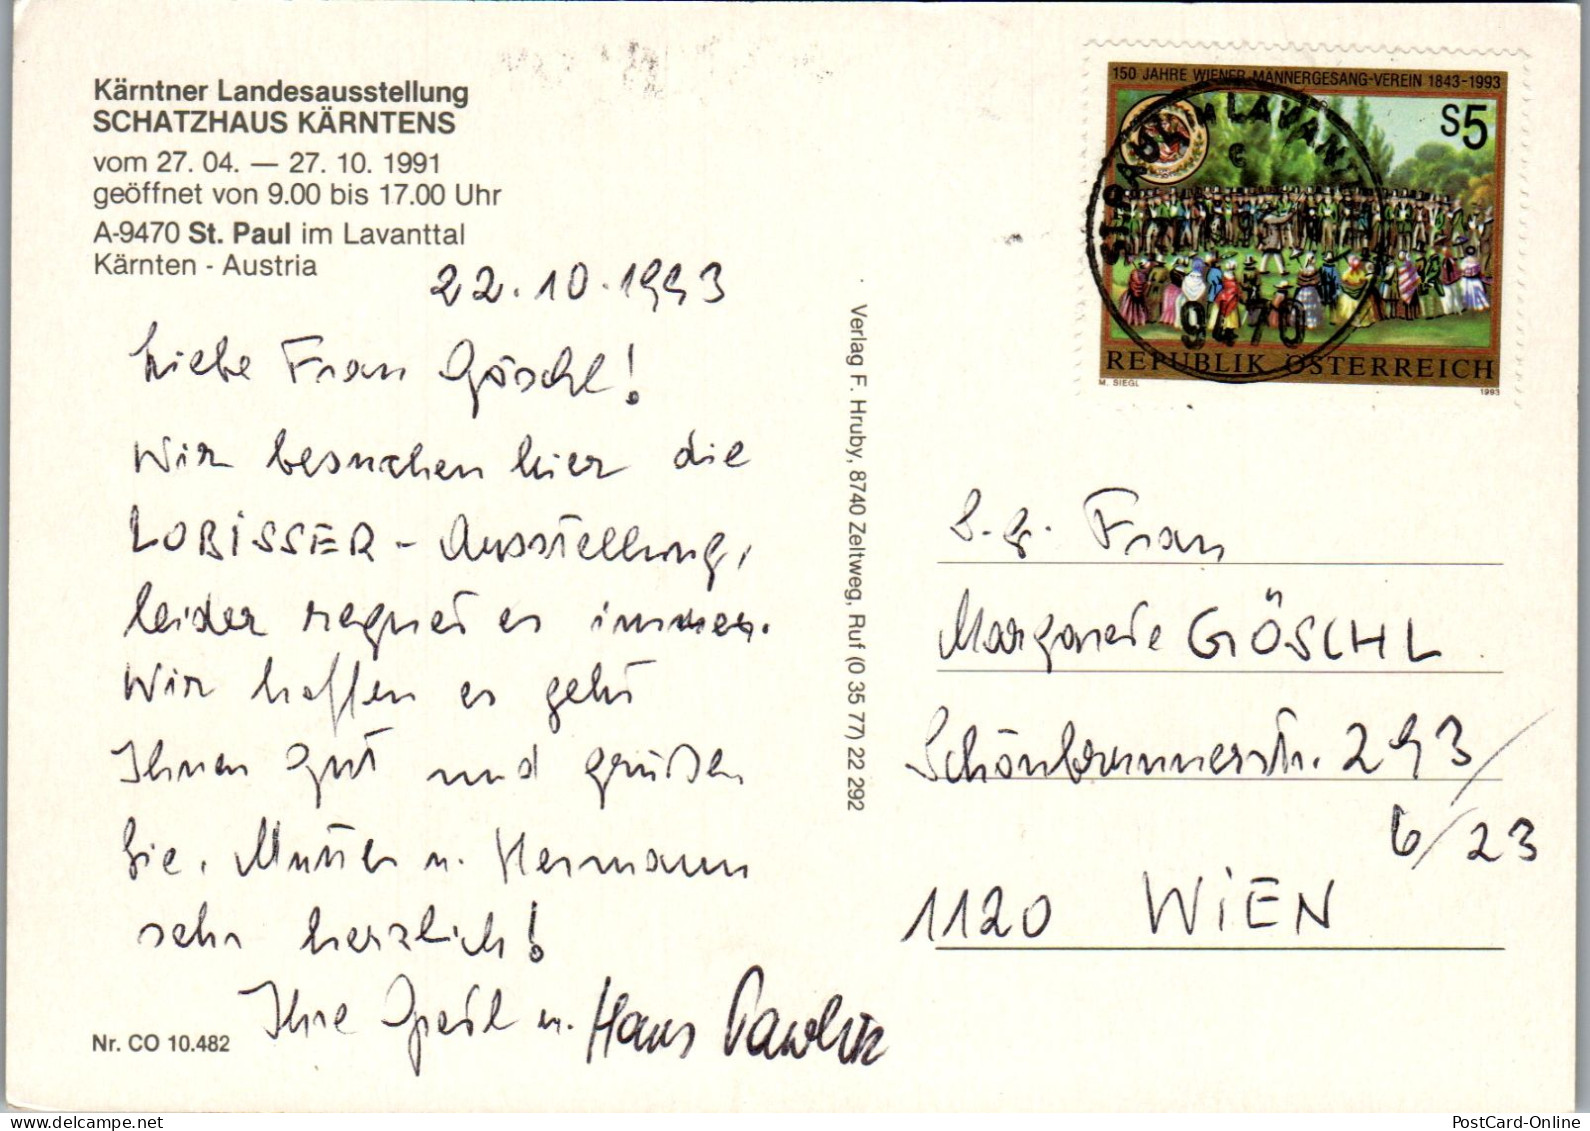 Kärntner Landesausstellung
SCHATZHAUS KÄRNTENS
vom 27. 04. — 27. 10. 1991
geöffnet von 9.00 bis 17.00 Uhr
A-9470 St. Paul im Lavanttal
Kärnten - Austria
22.10.1993
Liebe Frau Göschl!
Wir besuchen hier die
LOBISSER-Ausstellung,
leider regnet es immer.
Wir hoffen es geht
Ihnen gut und grüßen
Sie, Mutter u. Hermann
sehr herzlich!
Ihre u. Hans
Nr. CO 10.482
Verlag F. Hruby, 8740 Zeltweg, Ruf (0 35 77) 22 292
150 JAHRE WIENER MÄNNERGESANG-VEREIN 1843-1993
S5
REPUBLIK ÖSTERREICH
M. SIEGL 1993
ST. PAUL IM LAVANTTAL
9470
S. g. Frau
Margarete GÖSCHL
Schönbrunnerstr. 293/
6/23
1120 WIEN
PostCard-Online